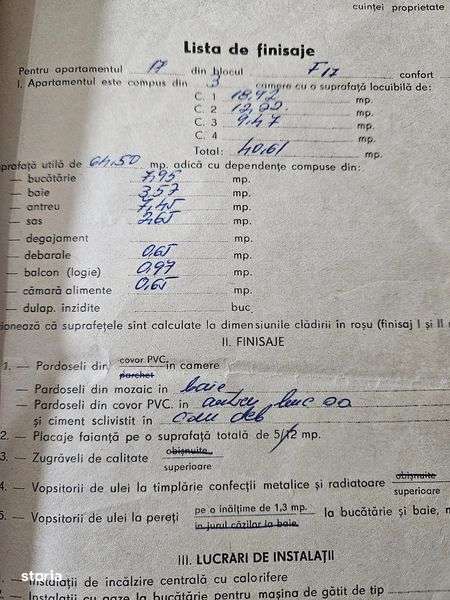 cuinței proprietate
Lista de finisaje
Pentru apartamentul 17 din blocul F17 confort
I. Apartamentul este compus din 3 camere cu o suprafață locuibilă de:
C. 1 18,92 mp.
C. 2 mp.
C. 3 9,47 mp.
C. 4 mp.
Total: 40,61 mp.
prafață utilă de 64.50 mp. adică cu dependențe compuse din:
— bucătărie 7,95 mp.
— baie 3,57 mp.
— antreu 7,45 mp.
— sas 2,65 mp.
— degajament mp.
— debarale 0,65 mp.
— balcon (logie) 0,97 mp.
— cămară alimente 0,65 mp.
— dulap. inzidite buc
ționează că suprafețele sînt calculate la dimensiunile clădirii în roșu (finisaj I și II
II. FINISAJE
1. — Pardoseli din covor PVC. in camere
parchet
— Pardoseli din mozaic in baie
— Pardoseli din covor PVC. in antreu buc
și ciment sclivistit in cam deb
2. — Placaje faianță pe o suprafață totală de 5/12 mp.
3. — Zugrăveli de calitate obișnuite
superioare
4. — Vopsitorii de ulei la timplărie confecții metalice și radiatoare obișnuite
superioare
5. — Vopsitorii de ulei la pereți pe o inălțime de 1,3 mp. la bucătărie și baie,
in jurul căzilor la baie.
III. LUCRARI DE INSTALAȚII
— Instalații de incălzire centrală cu calorifere
— Instalații cu gaze la bucătărie pentru mașina de gătit de tip
storia